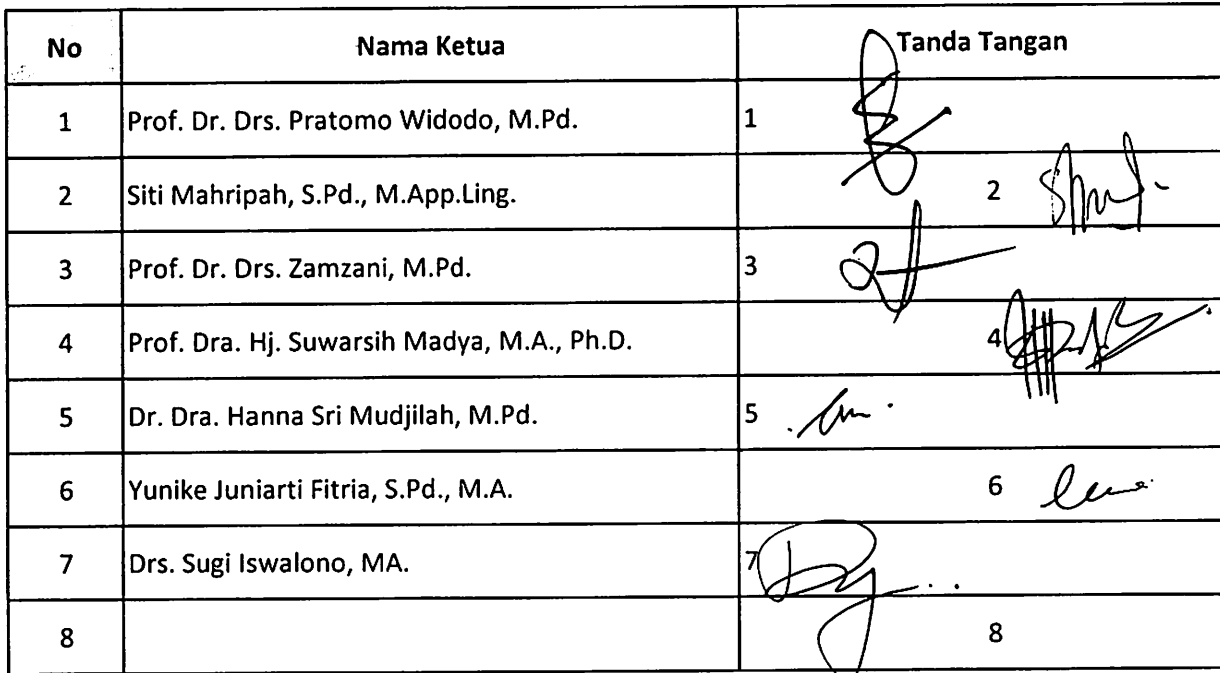 No Nama Ketua Tanda Tangan
1 Prof. Dr. Drs. Pratomo Widodo, M.Pd. 1
2 Siti Mahripah, S.Pd., M.App.Ling. 2
3 Prof. Dr. Drs. Zamzani, M.Pd. 3
4 Prof. Dra. Hj. Suwarsih Madya, M.A., Ph.D. 4
5 Dr. Dra. Hanna Sri Mudjilah, M.Pd. 5
6 Yunike Juniarti Fitria, S.Pd., M.A. 6
7 Drs. Sugi Iswalono, MA. 7
8 8